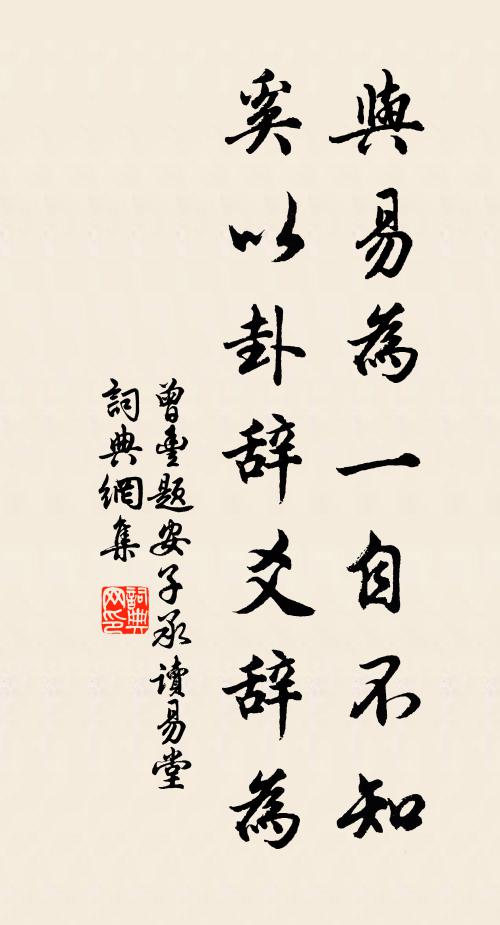 與易為一自不知
奚以卦辞爻辞為
曾豐題安子承讀易堂
詞典網集
詞典网印